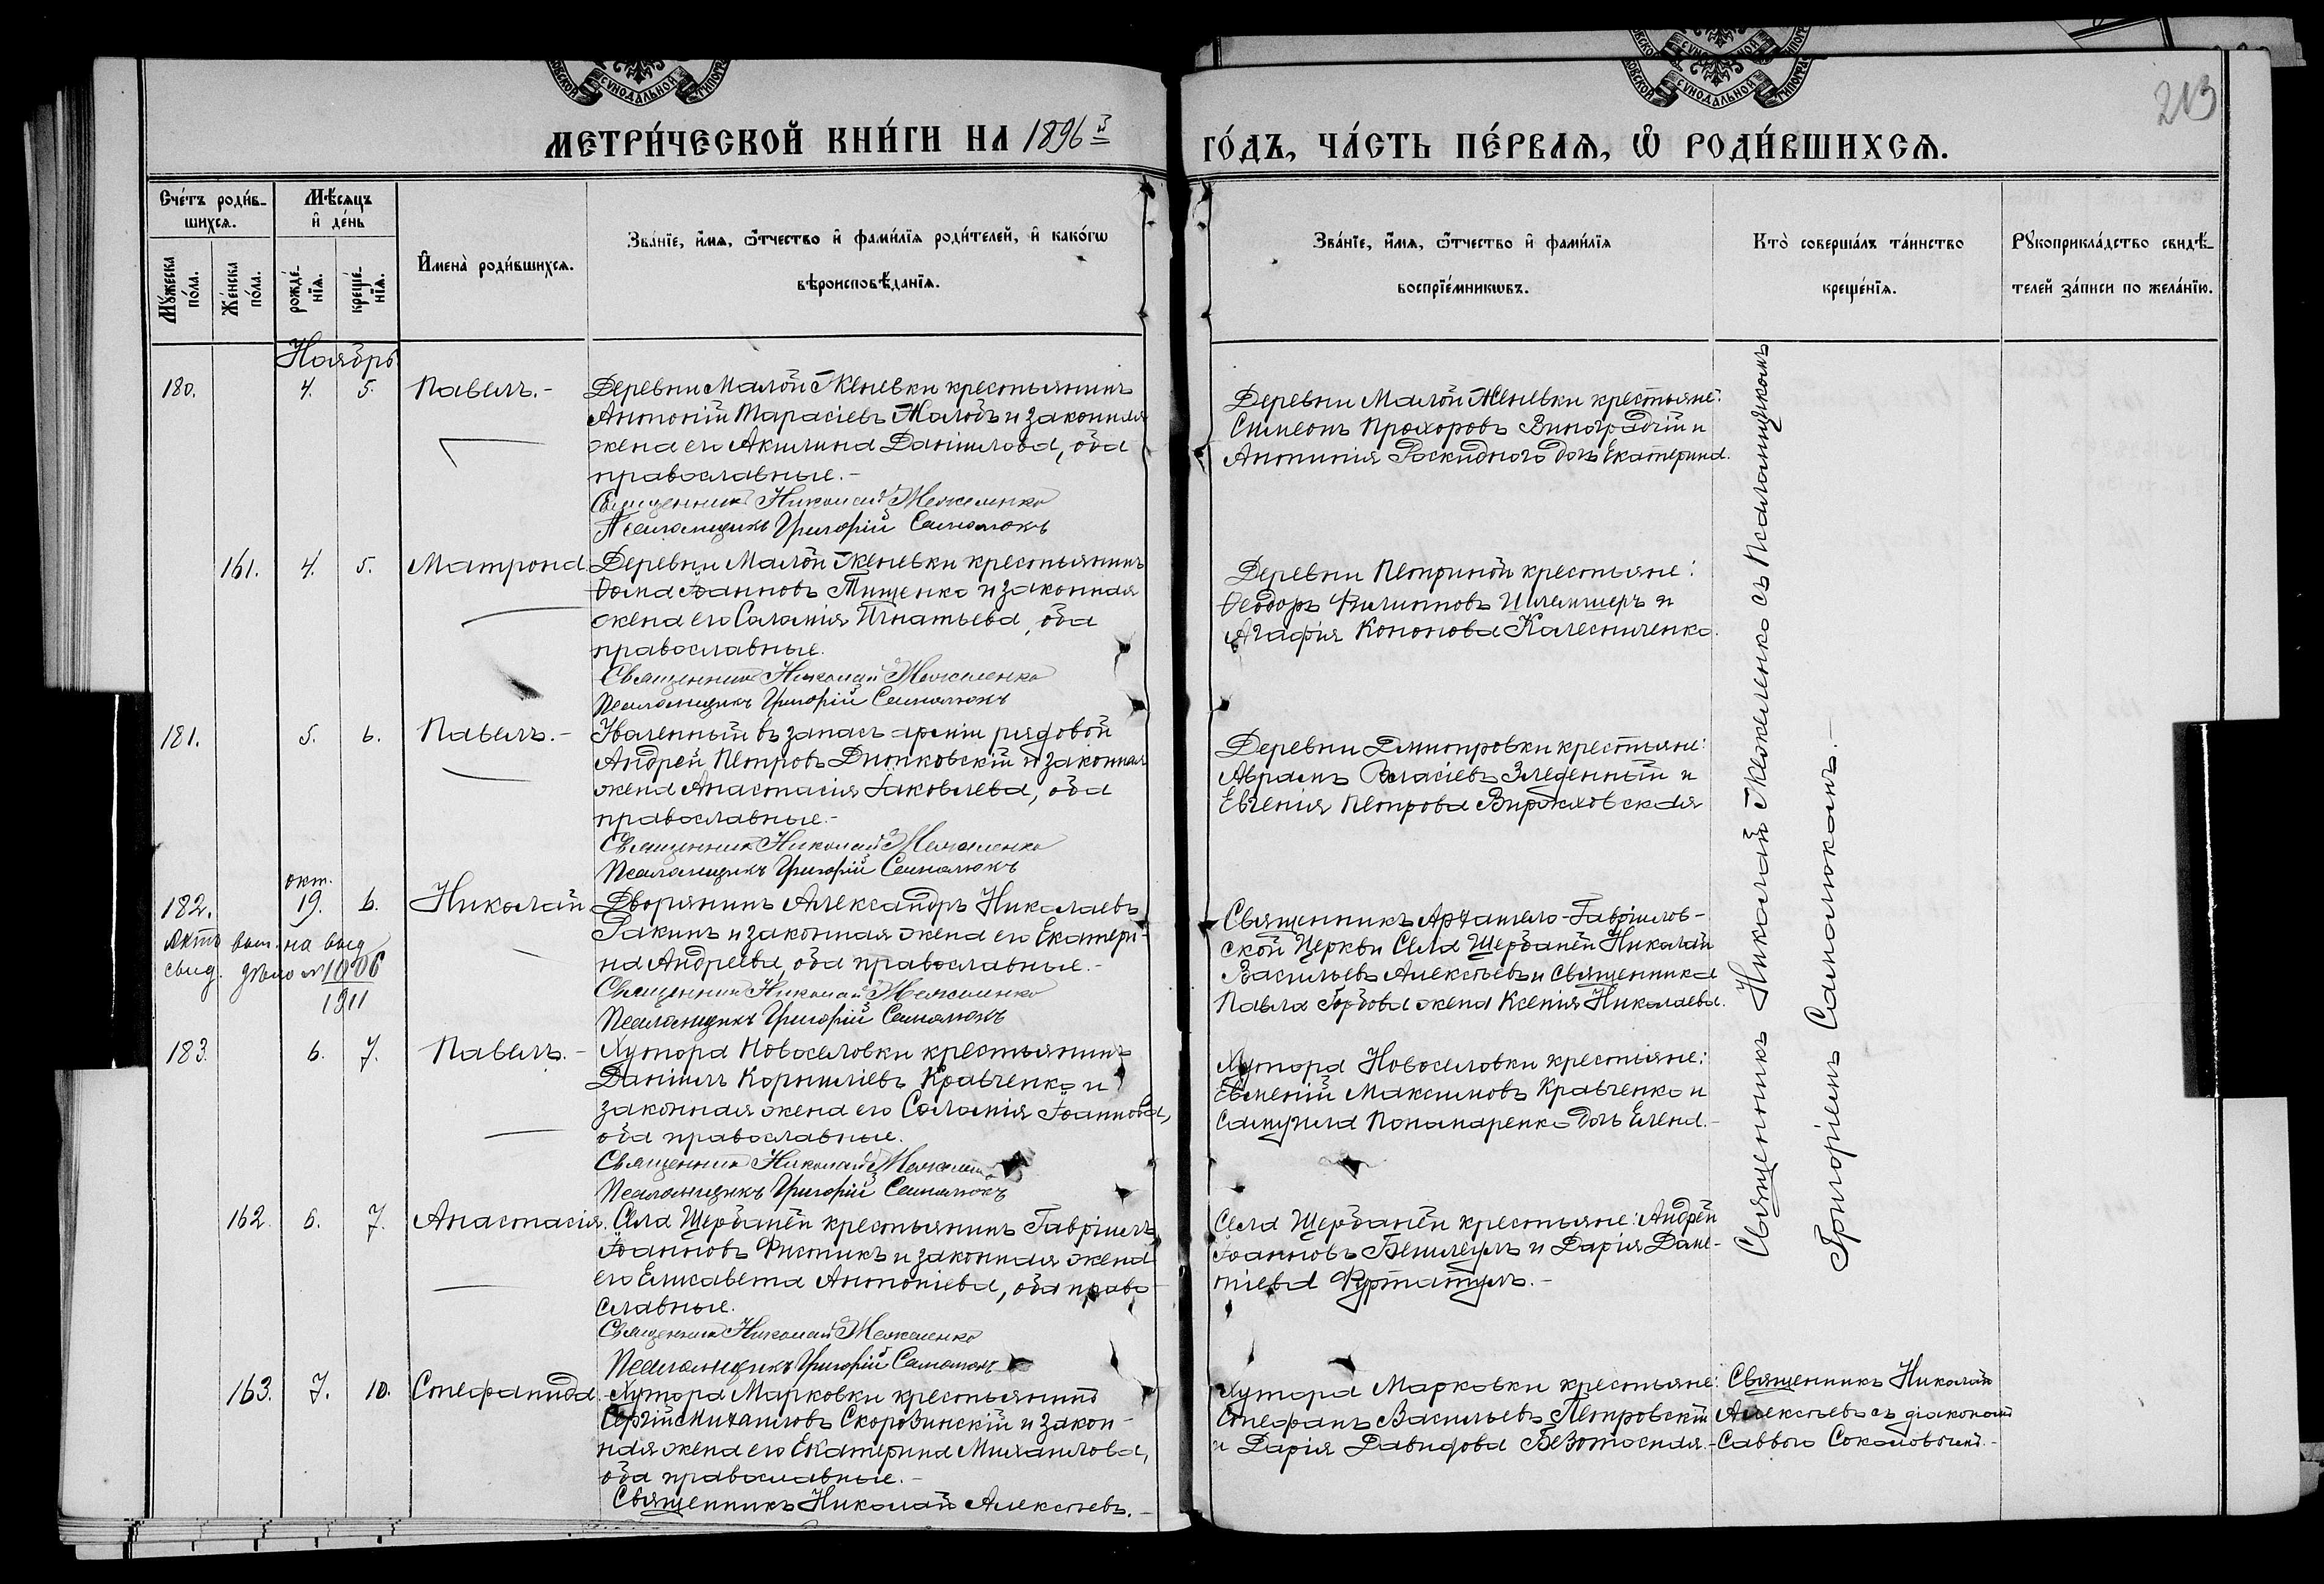 МЕТРИ́ЧЕСКОЙ КНИ́ГИ НА 1896й
ГО́ДЪ, ЧА́СТЬ ПЕ́РВАѦ, Ѡ РОДИ́ВШИХСѦ.
213
Сче́тъ роди́в-
шихсѧ.
Мѣ́сѧцъ
и҆ де́нь
Мꙋ́жеска по́ла.
Же́нска по́ла.
рожде́-нїѧ.
креще́-нїѧ.
И҆мена̀ роди́вшихсѧ.
Зва́нїе, и҆́мѧ, ѻ҆́тчество и҆ фами́лїѧ роди́телей, и҆ како́гѡ
вѣроисповѣ́данїѧ.
Зва́нїе, и҆́мѧ, ѻ҆́тчество и҆ фами́лїѧ
воспрїе́мникѡвъ.
Кто̀ соверша́лъ та́инство
креще́нїѧ.
Рꙋкоприкла́дство свидѣ́-
телей за́писи по жела́нїю.
Ноябрь
180. 4. 5. Павелъ.- Деревни Малой Женевки крестьянинъ
Антоній Тарасіевъ и законная
жена его Акилина Даніилова, оба
православные.-
Священникъ Николай Межеленко
Псаломщикъ Григорій Самолюкъ
Деревни Малой Женевки крестьяне:
Симеонъ Прохоровъ Виноградчій и
Антонія дочь Екатерина.
161. 4. 5. Матрона Деревни Малой Женевки крестьянинъ
Ѳома Іоанновъ Тищенко и законная
жена его Саломія Игнатьева, оба
православные.
Священникъ Николай Межеленко
Псаломщикъ Григорій Самолюкъ
Деревни Петриной крестьяне:
Ѳеодоръ Филипповъ и
Агафія Кононова Калесниченко.
181. 5. 6. Павелъ.- Уволенный въ запасъ арміи рядовой
Андрей Петровъ и законная
жена Анастасія Іаковлева, оба
православные.-
Священникъ Николай Межеленко
Псаломщикъ Григорій Самолюкъ
Деревни Дмитровки крестьяне:
Аврамъ Власіевъ и
Евгенія Петрова
окт.
182. 19. 6. Николай Дворянинъ Александръ Николаевъ
Ракинъ и законная жена его Екатери-
на Андреева, оба православные.-
Священникъ Николай Межеленко
Псаломщикъ Григорій Самолюкъ
вып. на выд
свид. дѣло № 1006
1911
Священникъ Архангело-Гавріилов-
ской Церкви Села Щербаней Николай
Васильевъ Алексѣевъ и Священника
Павла жена Ксенія Николаева.
183. 6. 7. Павелъ.- Хутора Новоселовки крестьянинъ
Даніилъ Корниліевъ Кравченко и
законная жена его Саломія Іоаннова,
оба православные.
Священникъ Николай
Псаломщикъ Григорій Самолюкъ
Хутора Новоселовки крестьяне:
Евменій Максимовъ Кравченко и
Самуила Понамаренко дочь Елена.-
162. 6. 7. Анастасія. Села Щербаней крестьянинъ Гавріилъ
Іоанновъ Фистикъ и законная жена
его Елисавета Антоніева, оба право
славные.
Священникъ Николай Межеленко
Псаломщикъ Григорій Самолюкъ
Села Щербаней крестьяне: Андрей
Іоанновъ и Дарія
163. 7. 10. Стефанида. Хутора Марковки крестьянинъ
Сергій Михаиловъ Скорозинскій и закон-
ная жена его Екатерина Михаилова,
оба православные.-
Священникъ Николай Алексѣевъ.-
Хутора Марковки крестьяне:
Стефанъ Васильевъ Петровскій
и Дарія Давидова
Священникъ Николай
Алексѣевъ съ діакономъ
Саввою Соколовскимъ.-
Священникъ Николай Межеленко съ Псаломщикомъ
Григоріемъ Самолюкомъ.-